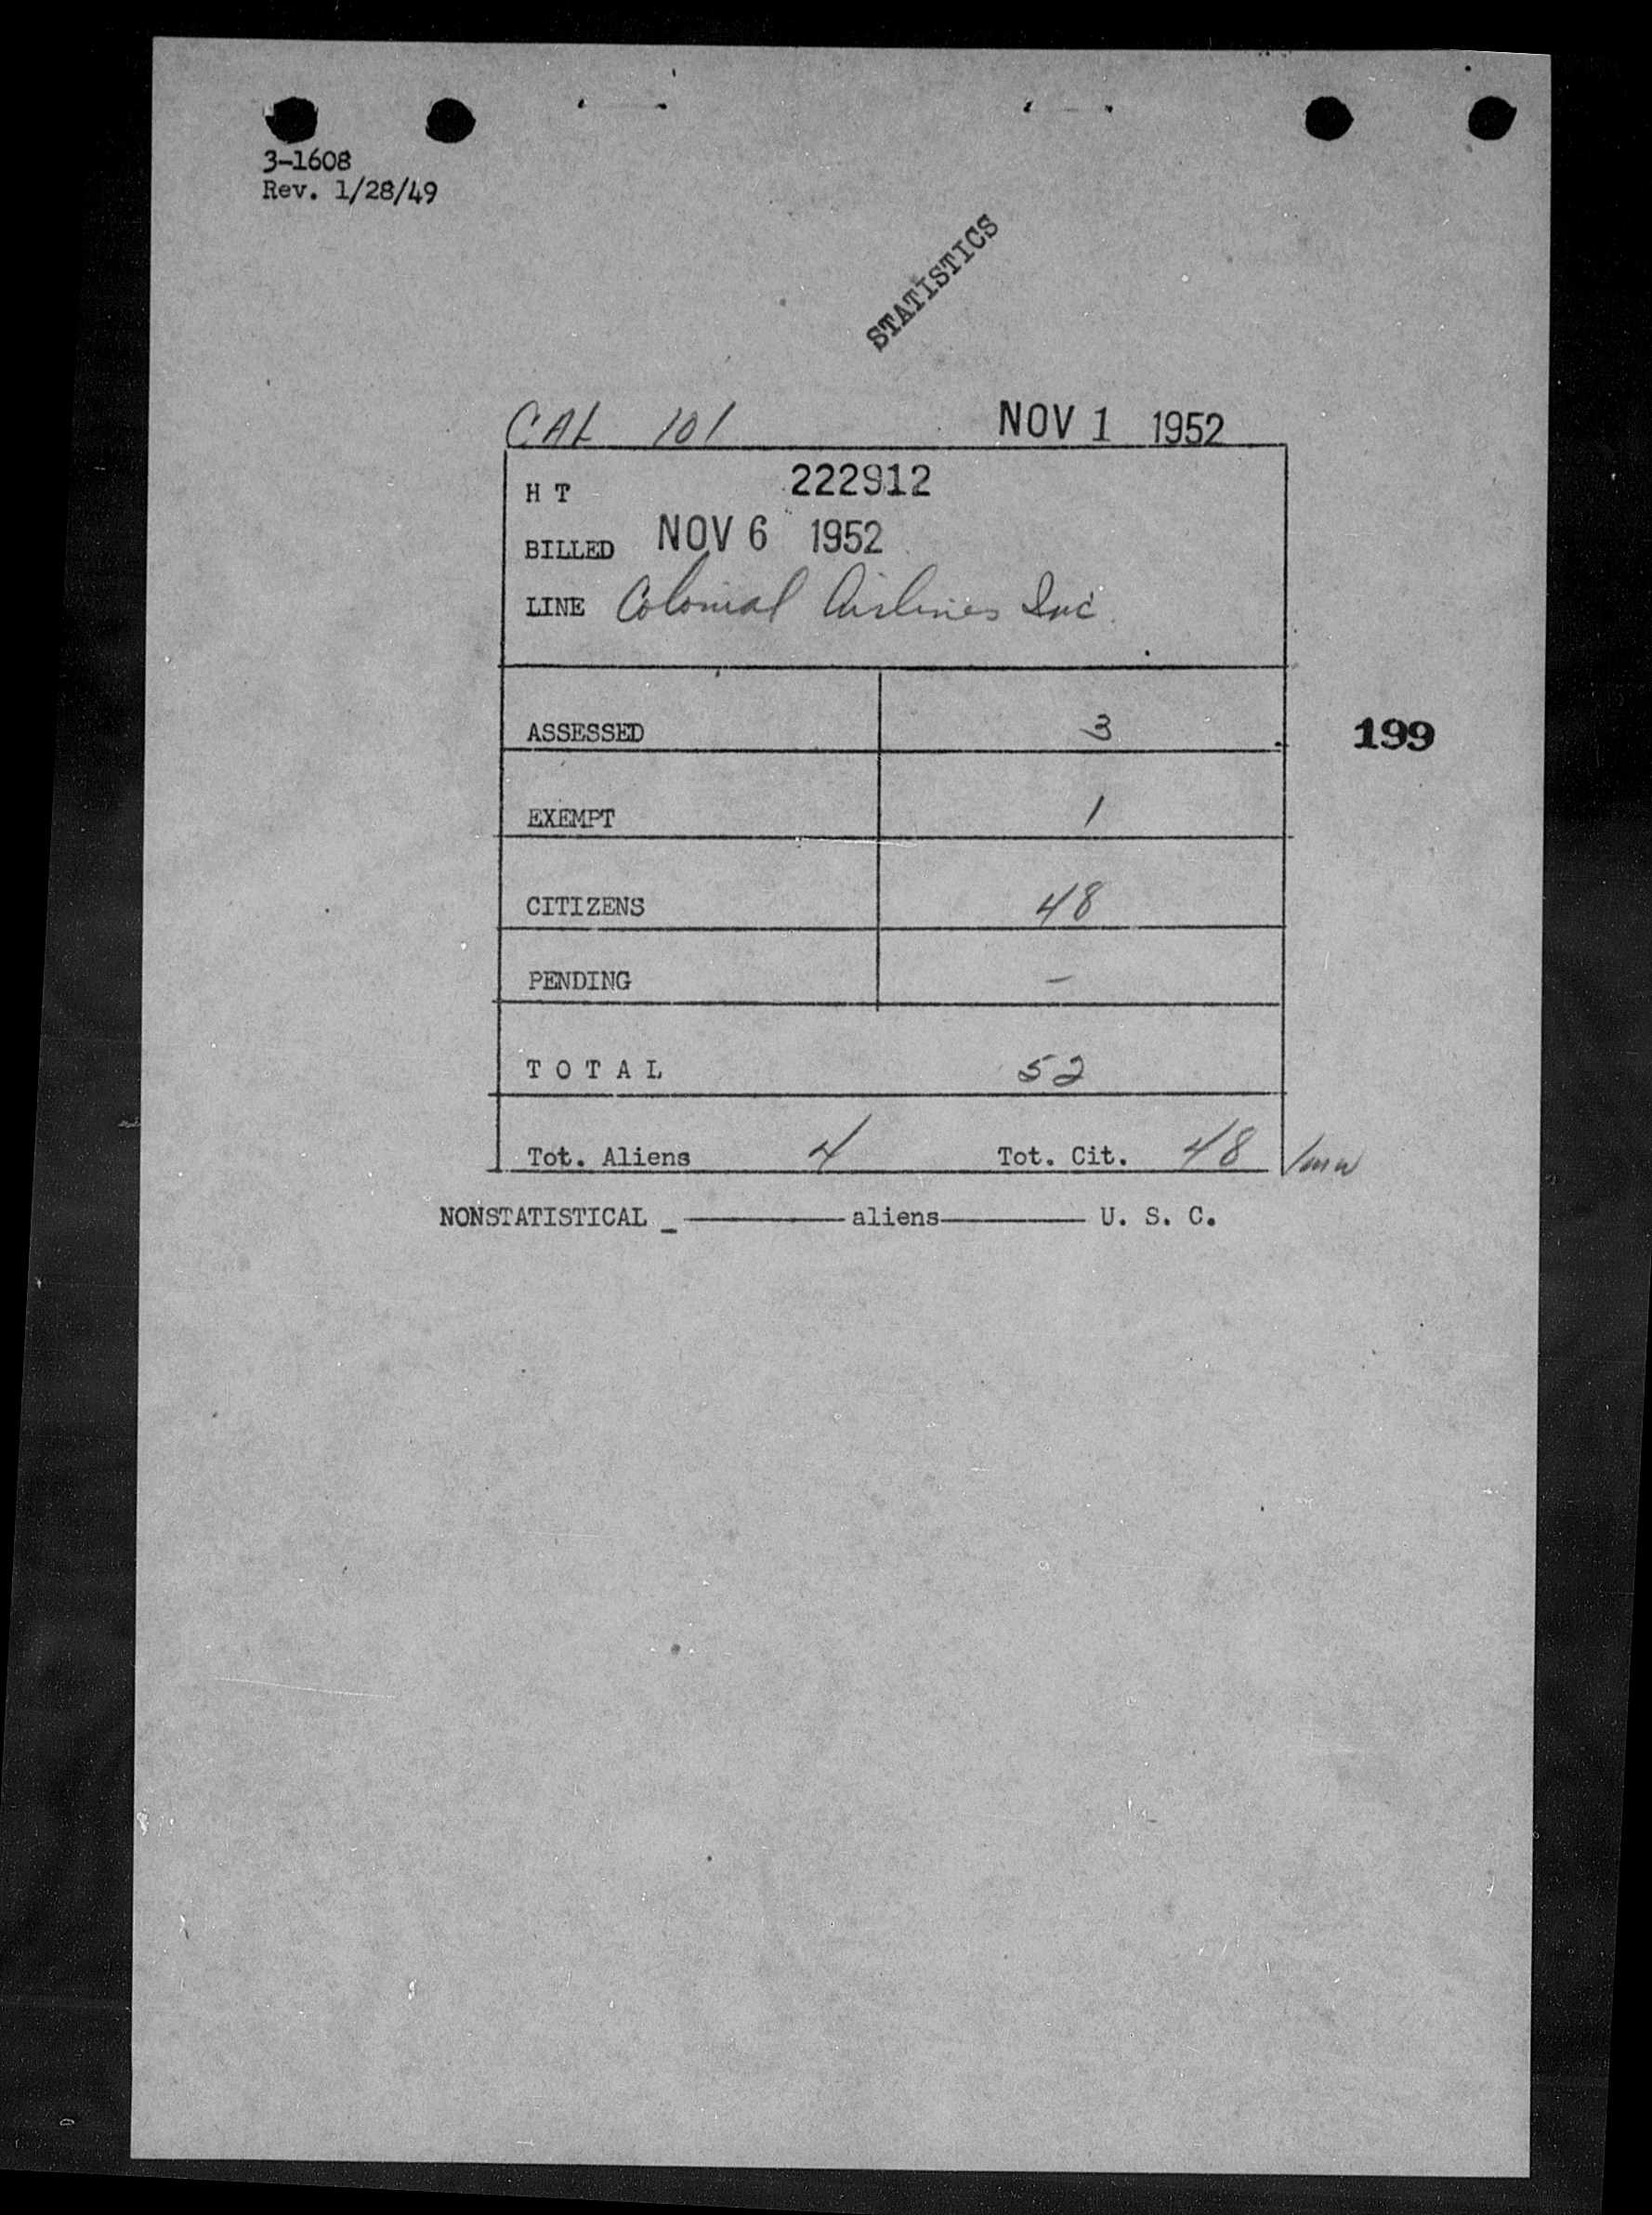 3-1608
Rev. 1/28/49
STATISTICS
CAL 101 NOV 1 1952
H T 222912
BILLED NOV 6 1952
LINE Colonial Airlines Inc.
ASSESSED 3
199
EXEMPT 1
CITIZENS 48
PENDING –
T O T A L 52
Tot. Aliens 4 Tot. Cit. 48
NONSTATISTICAL _ ———— aliens———— U. S. C.